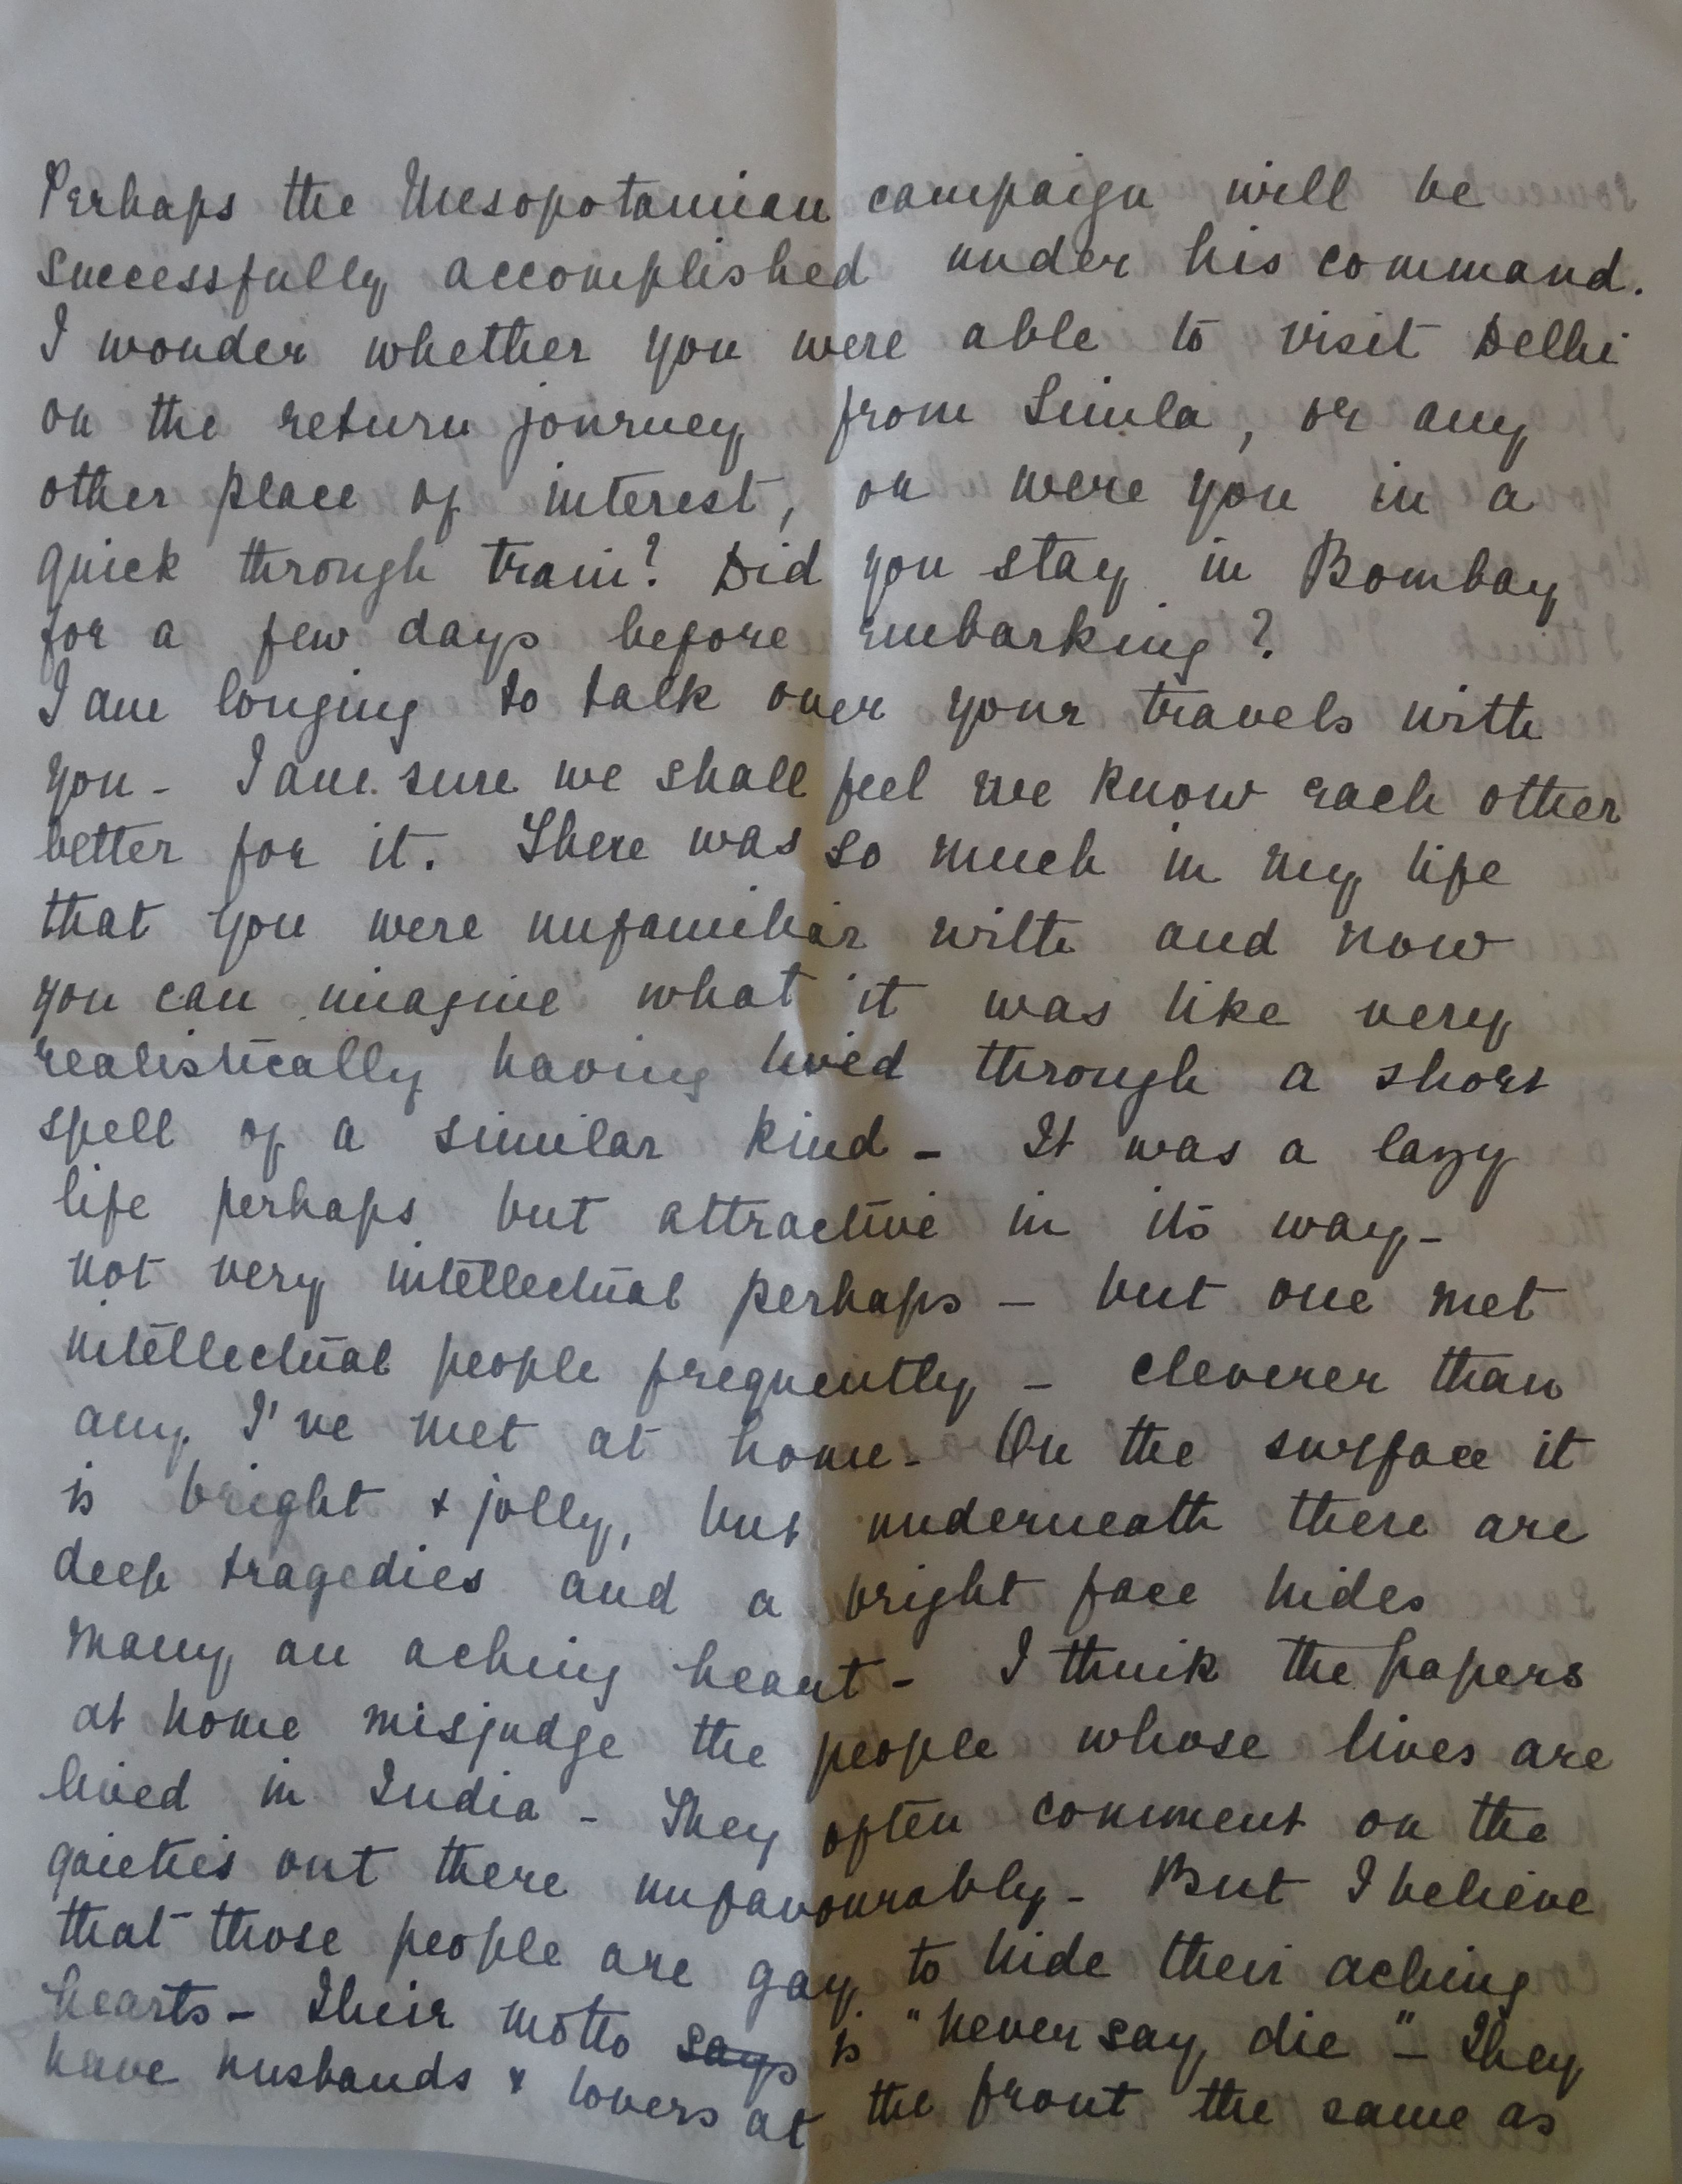 Perhaps the Mesopotamian campaign will be
successfully accomplished under his command.
I wonder whether you were able to visit Delhi
on the return journey from Simla, or any
other place of interest, or were you in a
quick through train? Did you stay in Bombay
for a few days before embarking?
I am longing to talk over your travels with
you - I am sure we shall feel we know each other
better for it. There was so much in my life
that you were unfamiliar with and now
you can imagine what it was like very
realistically having lived through a short
spell of a similar kind - It was a lazy
life perhaps but attractive in its way -
not very intellectual perhaps - but one met
intellectual people frequently - cleverer than
any I've met at home - On the surface it
is bright & jolly, but underneath there are
deep tragedies and a bright face hides
many an aching heart - I think the papers
at home misjudge the people whose lives are
lived in India - They often comment on the
gaieties out there unfavourably - But I believe
that those people are gay to hide their aching
hearts - Their motto says is "never say die" - They
have husbands & lovers at the front the same as